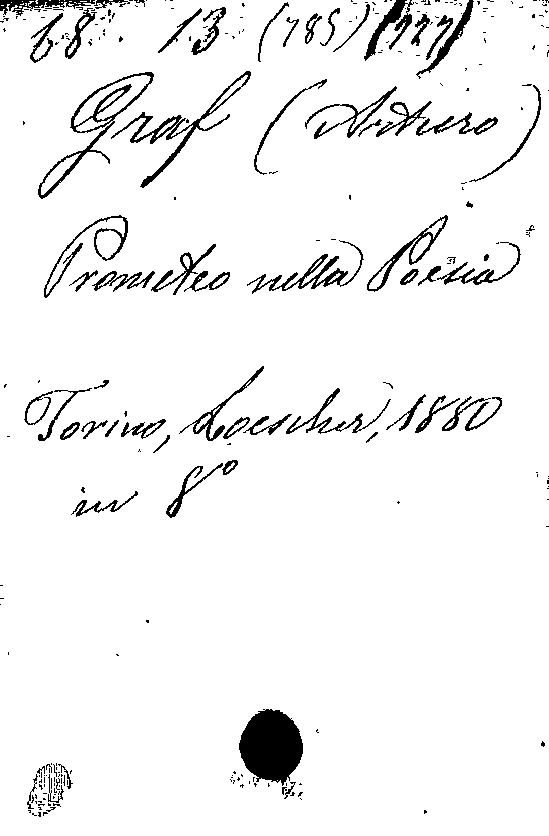 68. 13 (785) (727)
Graf (Arturo)
Prometeo nella Poesia
Torino, Loescher, 1880
in 8°